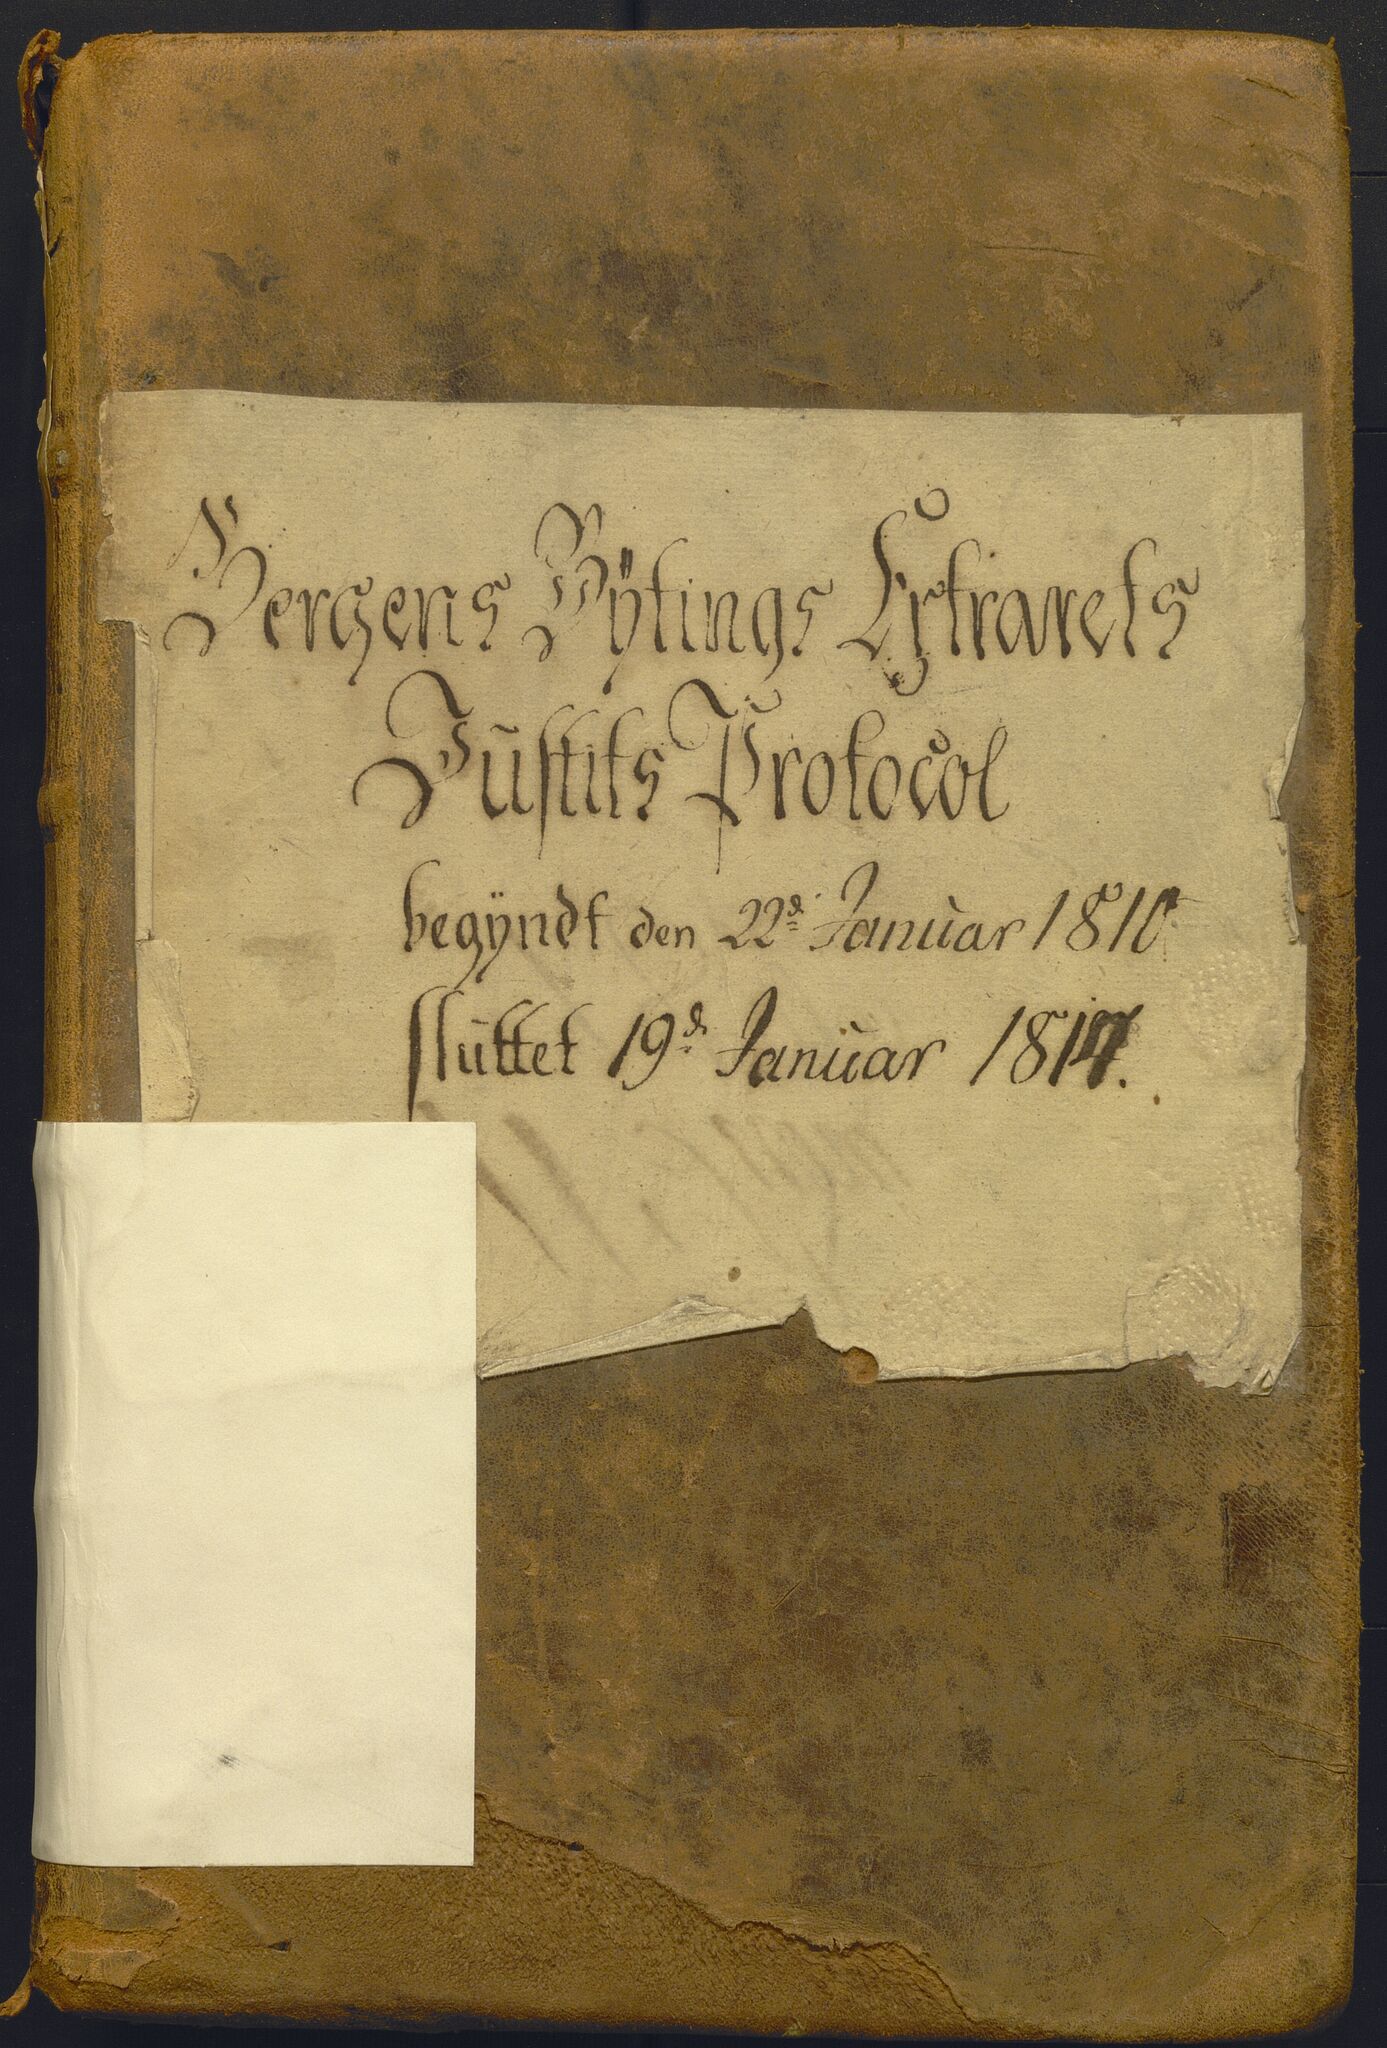 Bergens Bÿtings Extrarets
Justits Protocol
begÿndt den 22d Januar 1810
sluttet 19d Januar 1817.